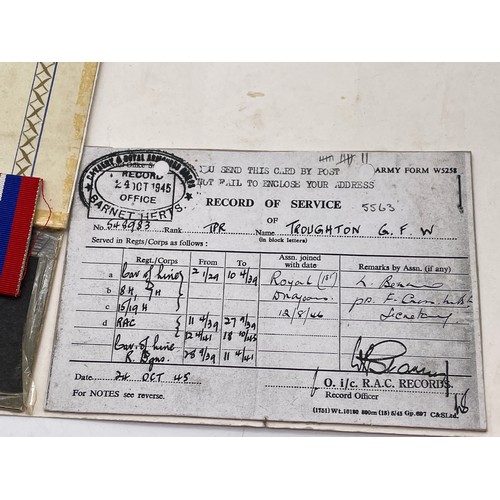 CAVALRY & ROYAL ARMOURED CORPS
RECORD
24 OCT 1945
OFFICE
BARNET HERTS.
YOU SEND THIS CARD BY POST
NOT FAIL TO ENCLOSE YOUR ADDRESS
ARMY FORM W5258
RECORD OF SERVICE
5563
OF
No. 548983 Rank TPR Name TROUGHTON G. F. W
(in block letters)
Served in Regts/Corps as follows:
Regt./Corps From To Assn. joined with date Remarks by Assn. (if any)
a Cav of Line 2 1/29 10 4/39 Royal (1st)
b 8H, 7H Dragoons
c 15/19 H 12/8/46 Secretary
d RAC 11 4/39 27 9/39
12 4/41 18 10/45
Cav. of Line 28 9/39 11 4/41
Date 24 OCT 45
O. i/c. R.A.C. RECORDS.
Record Officer
For NOTES see reverse.
(1751) Wt.10180 800m (18) 5/45 Gp.697 C&SLtd.